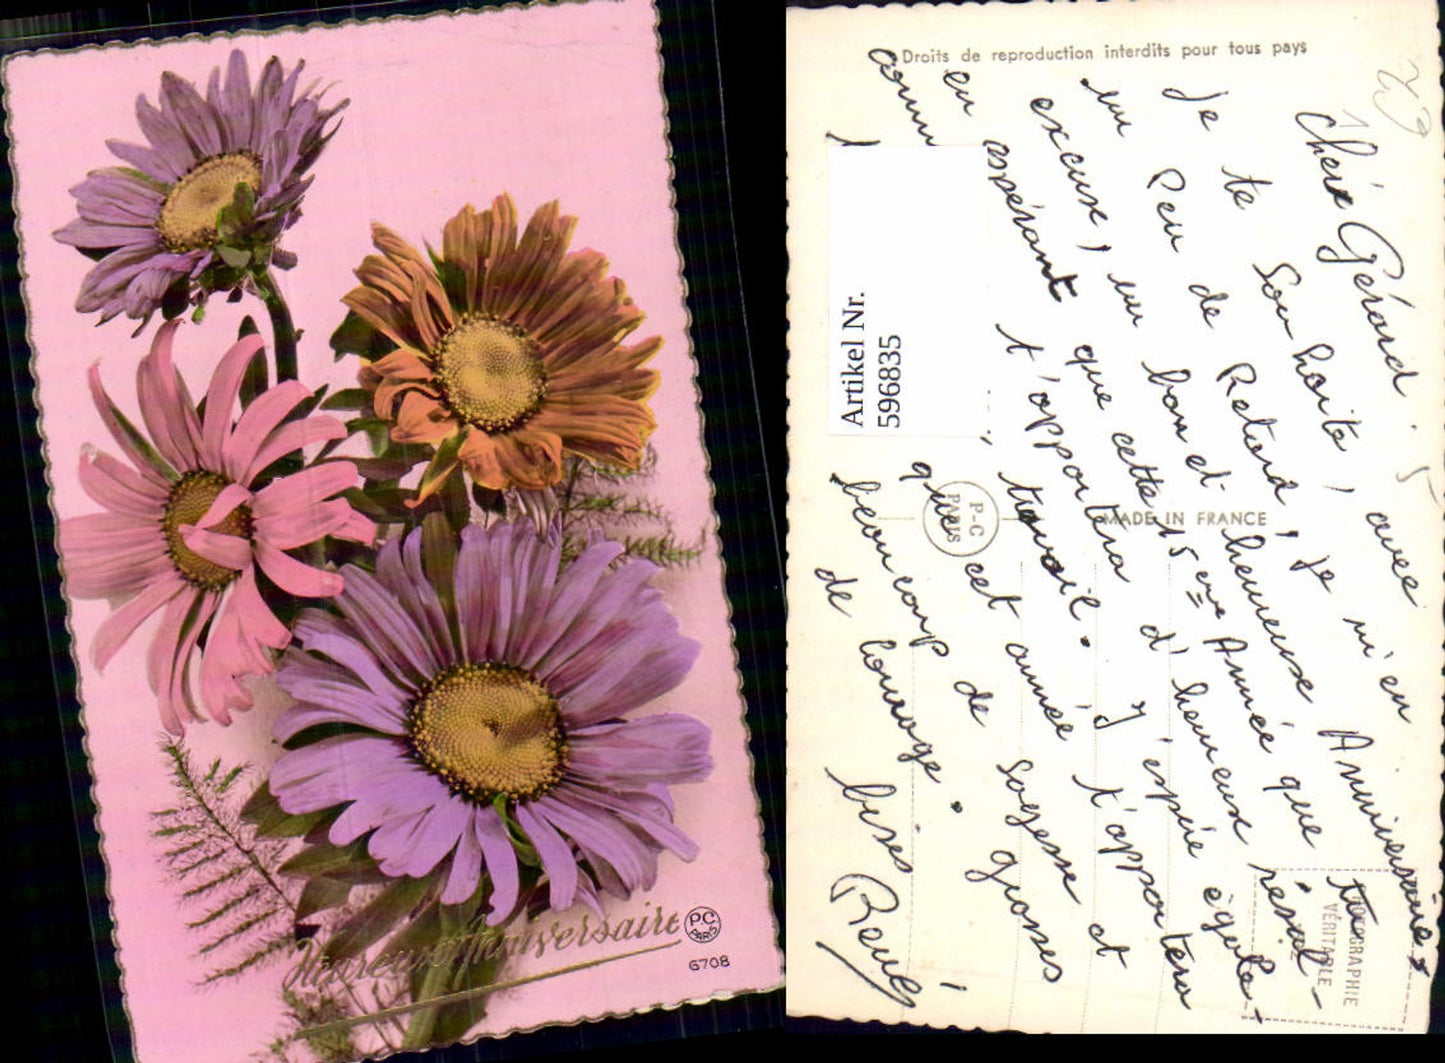 Heureux Anniversaire
P.C.
PARIS
6708
Droits de reproduction interdits pour tous pays
79
Chère Gérard.
Je te Souhaite, avec
un Peu de Retard, je m'en
excuse, un bon et heureuse Anniversaire,
en espérant que cette 15 eme Année que tu
comm
t'apportera d'heureuse résult-
travail. J'espère égale-
que cet année t'apportera
beaucoup de Sagesse et
de Courage.
grosses
bises
Artikel Nr.
596835
P-C
PARIS
MADE IN FRANCE
PHOTOGRAPHIE
VÉRITABLE